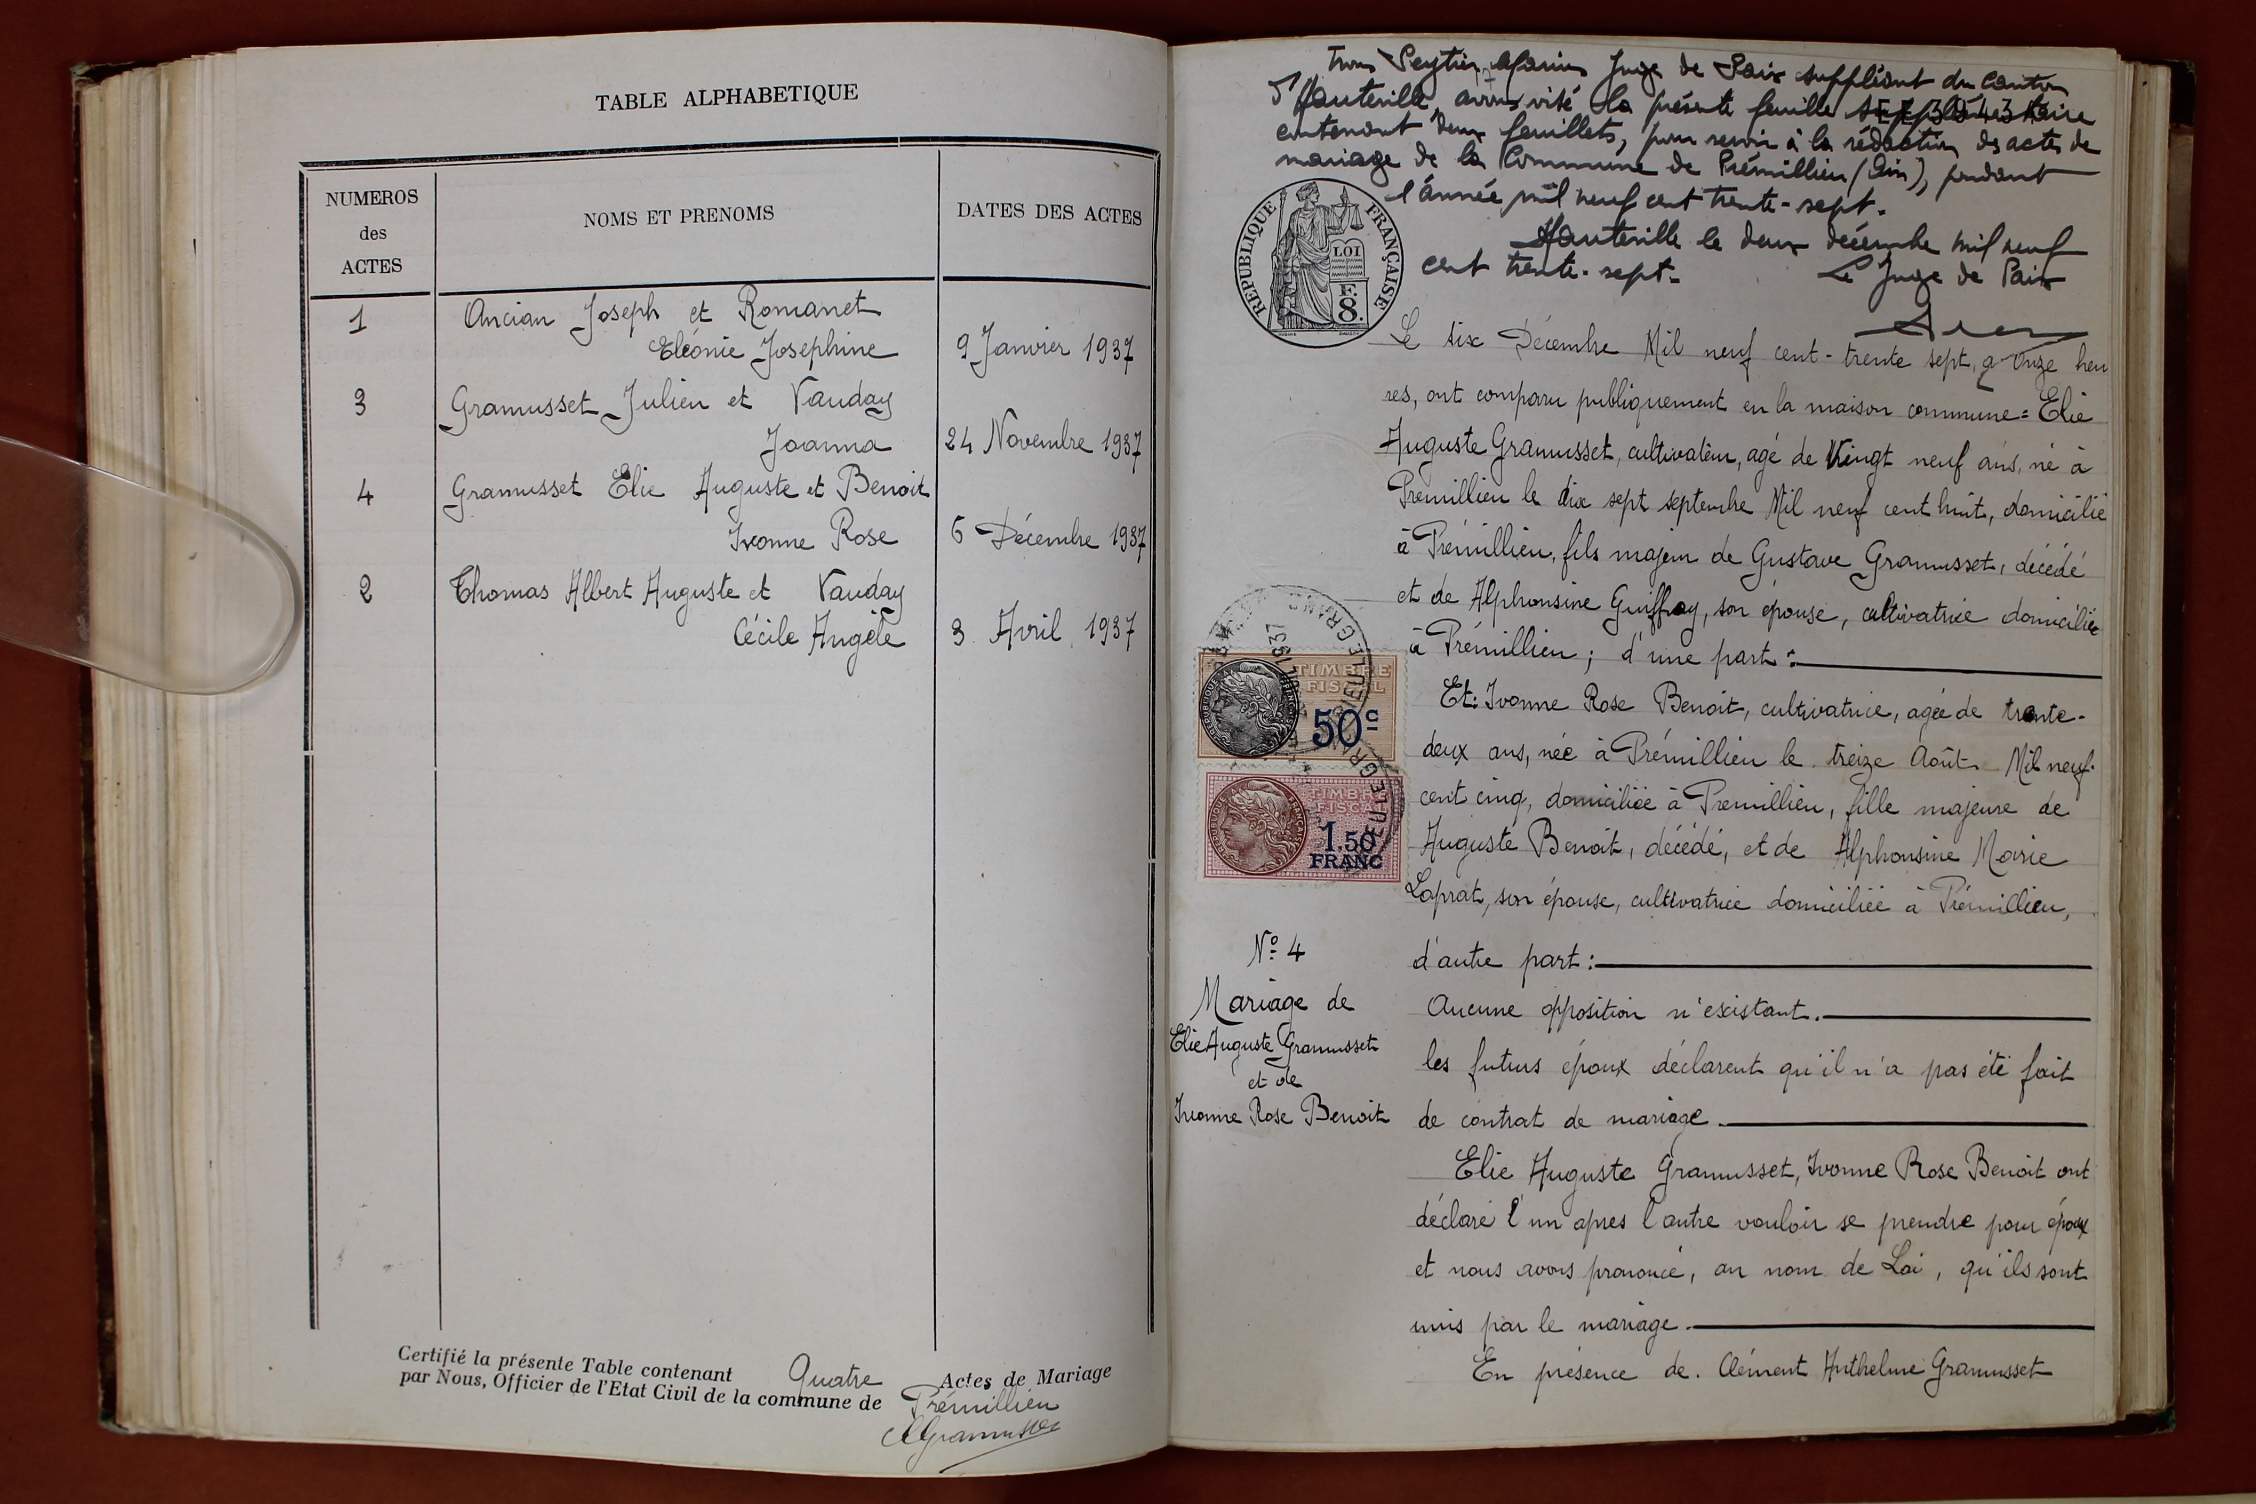 TABLE ALPHABETIQUE
NUMEROS
des
ACTES
NOMS ET PRENOMS
DATES DES ACTES
1
Ancian Joseph et Romanet
Eléonie Josephine
9 Janvier 1937
3
Gramusset Julien et Vauday
Joanna
24 Novembre 1937
4
Gramusset Elie Auguste et Benoit
Ivonne Rose
6 Décembre 1937
2
Thomas Albert Auguste et Vauday
Cécile Angèle
3 Avril 1937
Certifié la présente Table contenant Quatre Actes de Mariage
par Nous, Officier de l'Etat Civil de la commune de Prémillieu
Gramusset
Juge de Paix suppléant du Canton
d'Hauteville, avons visé la présente feuille supplémentaire
contenant deux feuillets, pour servir à la rédaction des actes de
mariage de la Commune de Prémillieu (Ain), pendant
l'année mil neuf cent trente-sept.
Hauteville le deux décembre mil neuf
cent trente-sept.
Le Juge de Paix
REPUBLIQUE FRANÇAISE
LOI
F.
8.
Le six Décembre Mil neuf cent-trente sept, à onze heu
res, ont comparu publiquement en la maison commune= Elie
Auguste Gramusset, cultivateur, agé de Vingt neuf ans, né à
Premillieu le dix sept septembre Mil neuf cent huit, domicilié
à Prémillieu, fils majeur de Gustave Gramusset, décédé
et de Alphonsine Guiffray, son épouse, cultivatrice domiciliée
à Prémillieu; d'une part:
Et: Ivonne Rose Benoit, cultivatrice, agée de trente-
deux ans, née à Prémillieu le treize Août Mil neuf-
cent cinq, domiciliée à Premillieu, fille majeure de
Auguste Benoit, décédé, et de Alphonsine Marie
Laprat, son épouse, cultivatrice domiciliée à Prémillieu,
d'autre part:
Aucune opposition n'existant.
les futurs époux déclarent qu'il n'a pas été fait
de contrat de mariage.
Elie Auguste Gramusset, Ivonne Rose Benoit ont
déclaré l'un apres l'autre vouloir se prendre pour époux
et nous avons prononcé, au nom de Loi, qu'ils sont
unis par le mariage.
En présence de. Clément Anthelme Gramusset
TIMBRE
FISCAL
50c
TIMBRE
FISCAL
1.50
FRANC
1937
No 4
Mariage de
Elie Auguste Gramusset
et de
Ivonne Rose Benoit